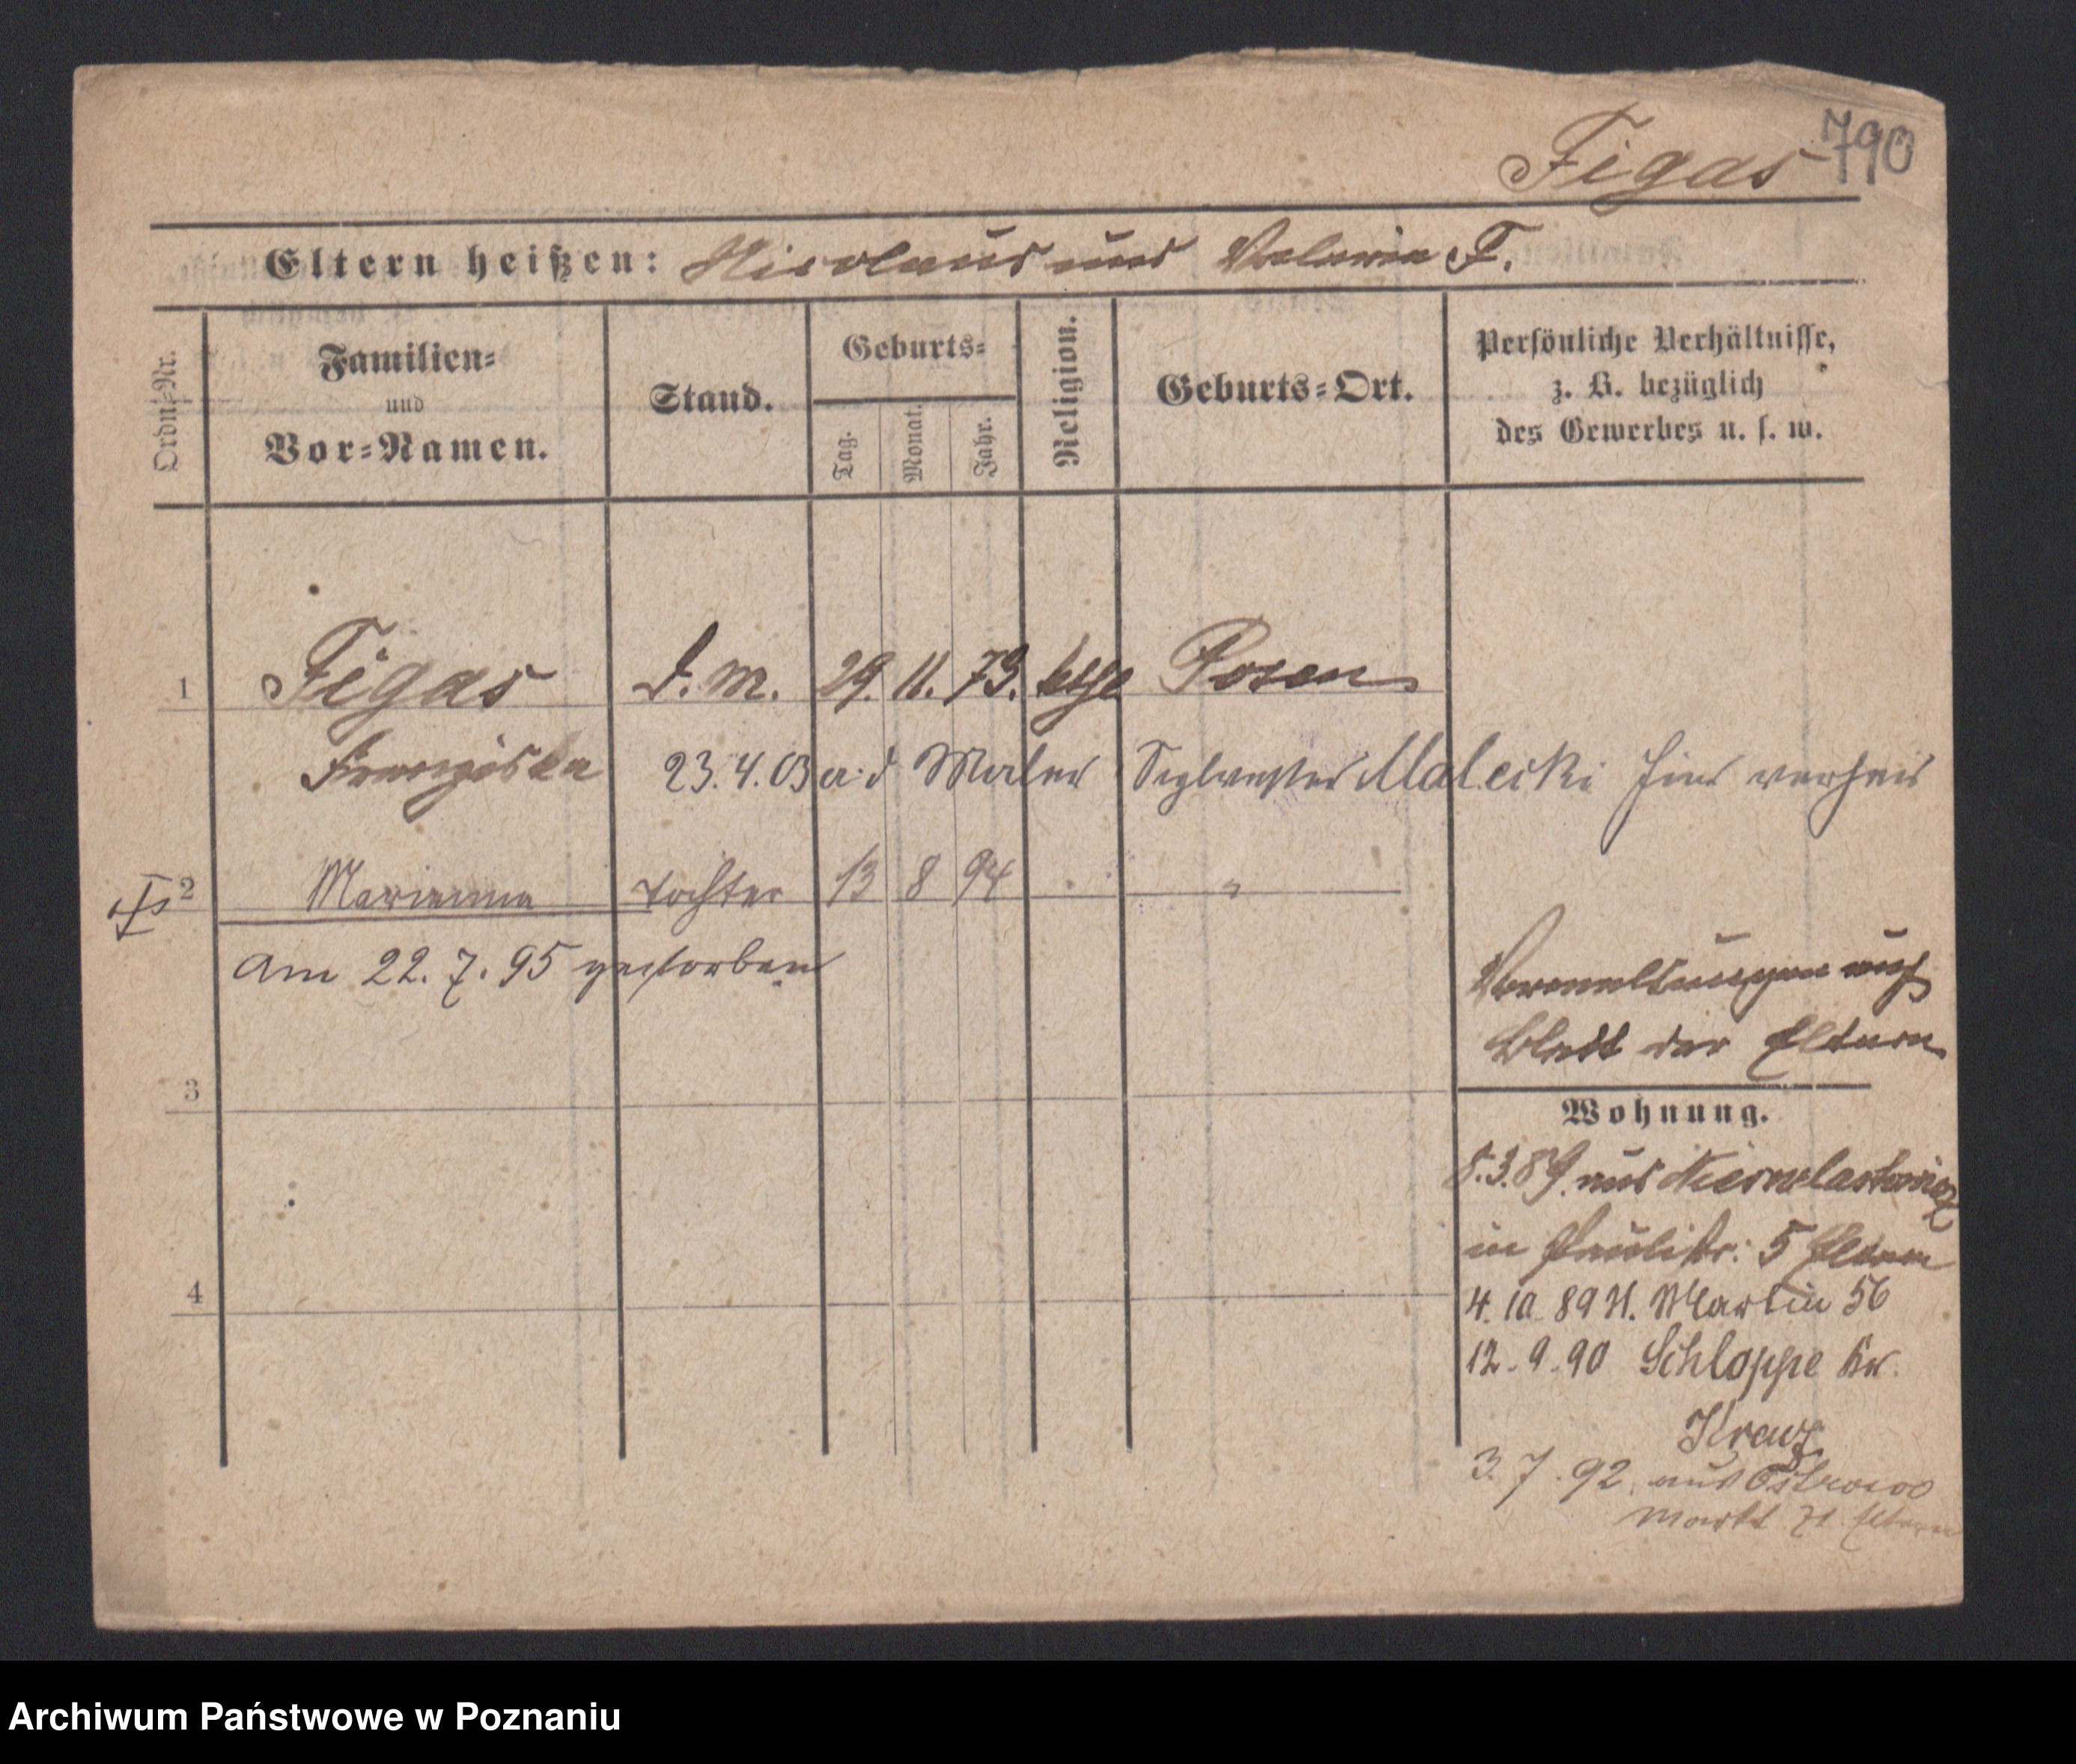 790
Figas
Eltern heißen: Nicolaus und Valeria F.
Ordn.-Nr.
Familien-
und
Vor-Namen.
Stand.
Geburts-
Tag.
Monat.
Jahr.
Religion.
Geburts-Ort.
Persönliche Verhältnisse,
z. B. bezüglich
des Gewerbes u. s. w.
1 Figas D. M. 29. 11. 73. kth Posen
Franziska 23. 4. 03 a. d Maler Sylvester Malecki hier verheir
2 Marianna Tochter 13 8 94 "
Am 22. 7. 95 gestorben
auf
Blatt der Eltern
3
Wohnung.
8. 3. 89. aus
in Paulistr: 5 Eltern
4
4. 10. 89 St. Martin 56
12. 9. 90 Schloppe Kr.
3. 7. 92. aus Ostrowo
Markt 71 Eltern
Archiwum Państwowe w Poznaniu